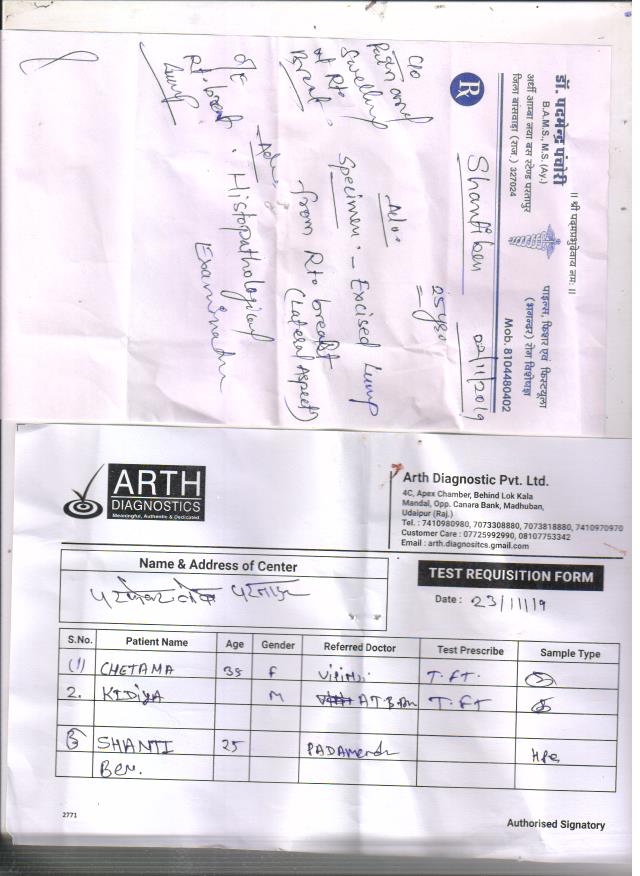 ॥ श्री पद्मप्रभुदेवाय नमः ॥
डॉ. पदमेन्द्र पंचोरी
B.A.M.S., M.S. (Ay.)
अर्थी आम्बा नया बस स्टेण्ड परतापुर
जिला बांसवाड़ा (राज.) 327024
पाइल्स, फिशर एवं फिस्टयूला
(भगन्दर) रोग विशेषज्ञ
Mob. 8104480402
Rx
Shantiben 02/11/2019
25 yrs
C/o
Pain and
Swelling
at Rt.
Breast
Adv.
Specimen:- Excised Lump
from Rt. breast
(Lateral Aspect)
O/E
Rt. breast
Lump
Adv.
Histopathological
Examination
ARTH
DIAGNOSTICS
Meaningful, Authentic & Dedicated
Arth Diagnostic Pvt. Ltd.
4C, Apex Chamber, Behind Lok Kala
Mandal, Opp. Canara Bank, Madhuban,
Udaipur (Raj.)
Tel. : 7410980980, 7073308880, 7073818880, 7410970970
Customer Care : 07725992990, 08107753342
Email : arth.diagnositcs.gmail.com
Name & Address of Center
TEST REQUISITION FORM
Date : 23/11/19
S.No. Patient Name Age Gender Referred Doctor Test Prescribe Sample Type
(1) CHETAMA 35 F T.FT.
2. KIDIYA M T.FT
(3) SHANTI 25 PADAmendr HPE
Ben.
2771
Authorised Signatory